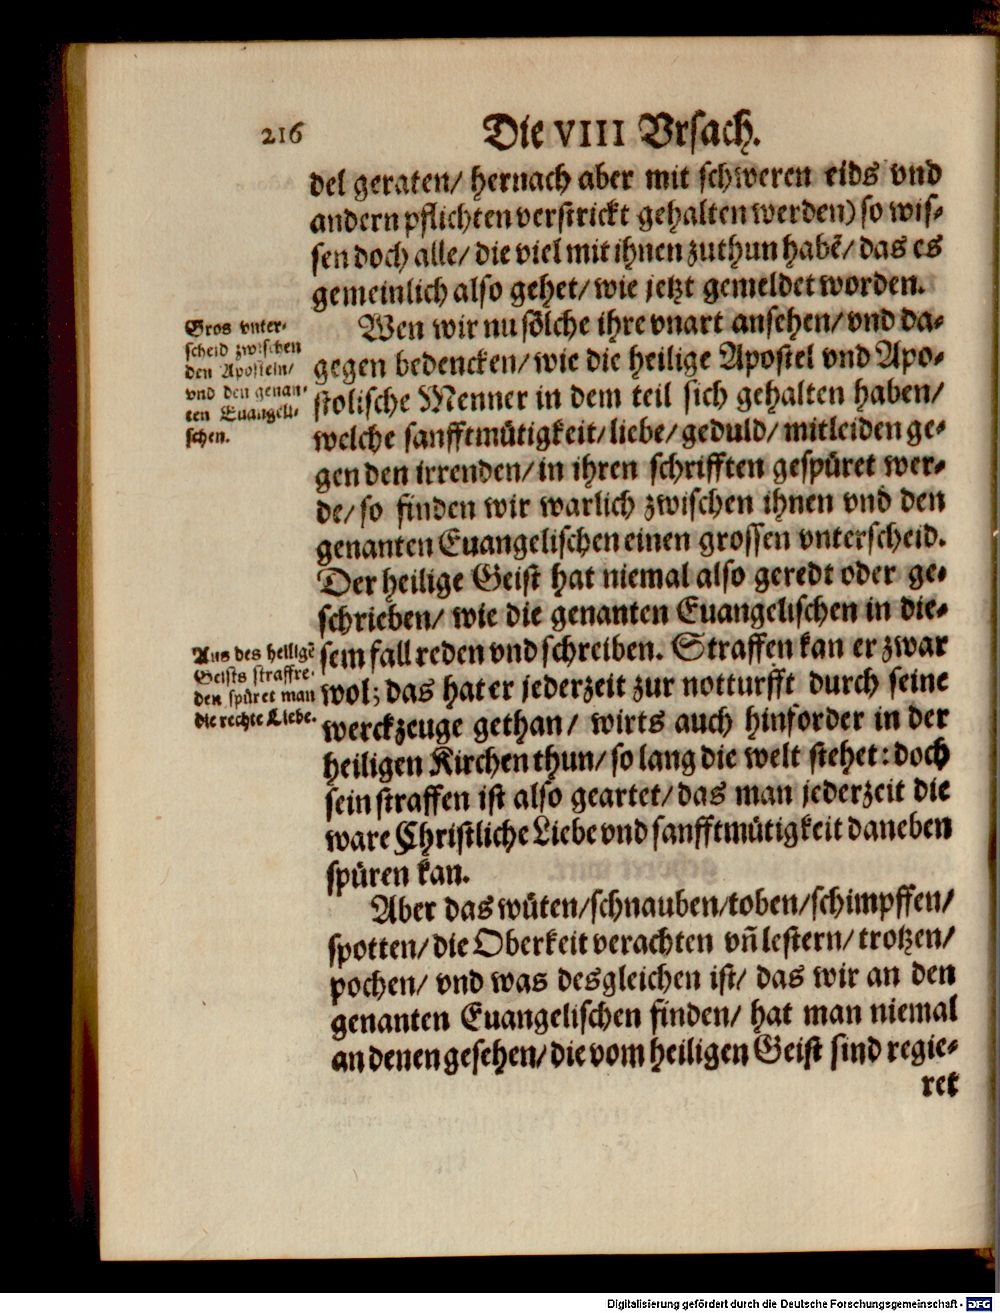 216 Die VIII Vrsach.
del geraten/ hernach aber mit schweren eids vnd
andern pflichten verstrickt gehalten werden) so wis-
sen doch alle/ die viel mit ihnen zuthun habē/ das es
gemeinlich also gehet/ wie jetzt gemeldet worden.
Gros vnter-
scheid zwischen
den Aposteln/
vnd den genan-
ten Euangeli-
schen.
Wen wir nu sölche ihre vnart ansehen/ vnd da-
gegen bedencken/ wie die heilige Apostel vnd Apo-
stolische Menner in dem teil sich gehalten haben/
welche sanfftmütigkeit/ liebe/ geduld/ mitleiden ge-
gen den irrenden/ in ihren schrifften gespüret wer-
de/ so finden wir warlich zwischen ihnen vnd den
genanten Euangelischen einen grossen vnterscheid.
Der heilige Geist hat niemal also geredt oder ge-
schrieben/ wie die genanten Euangelischen in die-
Aus des heiligē
Geists straffre-
den spüret man
die rechte Liebe.
sem fall reden vnd schreiben. Straffen kan er zwar
wol; das hat er jederzeit zur notturfft durch seine
werckzeuge gethan/ wirts auch hinforder in der
heiligen Kirchen thun/ so lang die welt stehet: doch
sein straffen ist also geartet/ das man jederzeit die
ware Christliche Liebe vnd sanfftmütigkeit daneben
spüren kan.
Aber das wüten/ schnauben/ toben/ schimpffen/
spotten/ die Oberkeit verachten vñ lestern/ trotzen/
pochen/ vnd was desgleichen ist/ das wir an den
genanten Euangelischen finden/ hat man niemal
an denen gesehen/ die vom heiligen Geist sind regie-
ret
Digitalisierung gefördert durch die Deutsche Forschungsgemeinschaft - DFG